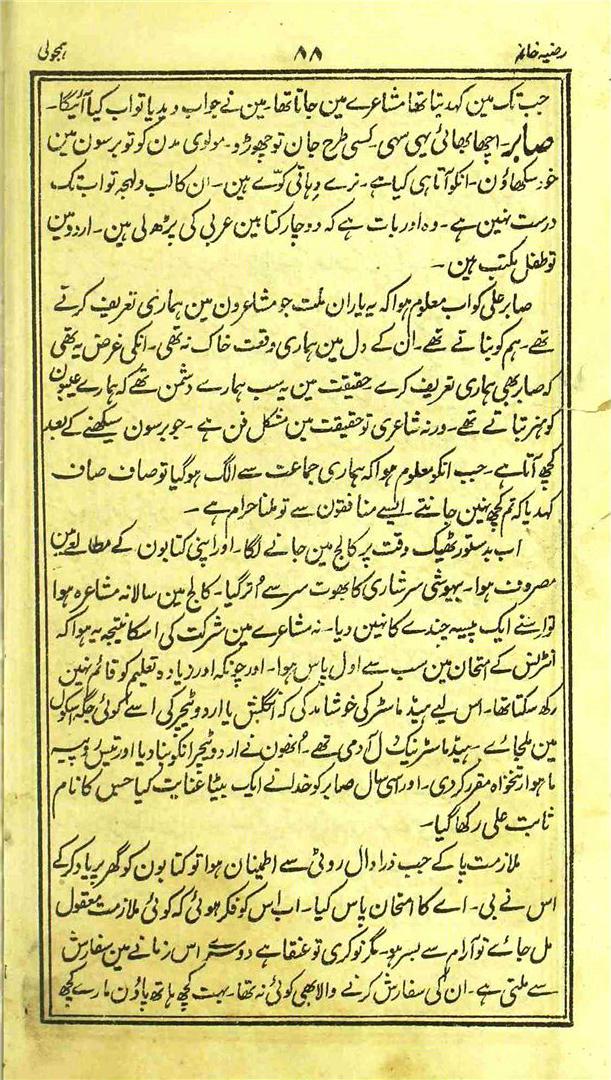 رضیہ خانم ۸۸ ہمجولی
جب تک مین کہدیتا تھا مشاعرے مین جاتا تھا۔ مین نے جواب دیدیا تو اب کیا آئیگا۔
صابر۔ اچھا بھائی یہی سہی۔ کسی طرح جان تو چھوڑو۔ مولوی مدن کو تو برسون مین
خود سکھاؤن۔ انکو آتا ہی کیا ہے۔ نرے دہاتی کوّے ہین۔ ان کا لب و لہجہ تو اب تک
درست نہین ہے۔ وہ اور بات ہے کہ دو چار کتابین عربی کی پڑھ لی ہین۔ اردو مین
تو طفل مکتب ہین۔
صابر علی کو اب معلوم ہوا کہ یہ یاران ملت جو مشاعرون مین ہماری تعریف کرتے
تھے۔ ہم کو بناتے تھے۔ ان کے دل مین ہماری وقعت خاک نہ تھی۔ انکی غرض یہ تھی
کہ صابر بھی ہماری تعریف کرے حقیقت مین یہ سب ہمارے دشمن تھے کہ ہمارے عیبون
کو ہنر بتاتے تھے۔ ورنہ شاعری تو حقیقت مین مشکل فن ہے۔ جو برسون سیکھنے کے بعد
کچھ آتا ہے۔ جب انکو معلوم ہوا کہ ہماری جماعت سے الگ ہوگیا تو صاف صاف
کہدیا کہ تم کچھ نہین جانتے ایسے منافقون سے تو ملنا حرام ہے۔
اب بدستور ٹھیک وقت پر کالج مین جانے لگا۔ اور اپنی کتابون کے مطالعے مین
مصروف ہوا۔ بیہوشی سرشاری کا بھوت سر سے اُتر گیا۔ کالج مین سالانہ مشاعرہ ہوا
تو اسنے ایک پیسہ چندے کا نہین دیا۔ نہ مشاعرے مین شرکت کی اسکا نتیجہ یہ ہوا کہ
انٹرنس کے امتحان مین سب سے اول پاس ہوا۔ اور چونکہ اور زیادہ تعلیم کو قائم نہین
رکھ سکتا تھا۔ اس لیے ہیڈ ماسٹر کی خوشامد کی کہ انگلش یا اردو ٹیچر کی اسے کوئی جگہ اسکول
مین ملجائے۔ ہیڈ ماسٹر نیک دل آدمی تھے۔ اُنھون نے اردو ٹیچر انکو بنا دیا اور تیس روپیہ
ماہوار تنخواہ مقرر کردی۔ اور اسی سال صابر کو خدا نے ایک بیٹا عنایت کیا جس کا نام
ثابت علی رکھا گیا۔
ملازمت پا کے جب ذرا دال روٹی سے اطمینان ہوا تو کتابون کو گھر پر یاد کر کے
اس نے بی۔ اے کا امتحان پاس کیا۔ اب اس کو فکر ہوئی کہ کوئی ملازمت معقول
مل جائے تو آرام سے بسر ہو۔ مگر نوکری تو عنقا ہے دوسرے اس زمانے مین سفارش
سے ملتی ہے۔ ان کی سفارش کرنے والا بھی کوئی نہ تھا۔ بہت کچھ ہاتھ پاؤن مارے کچھ